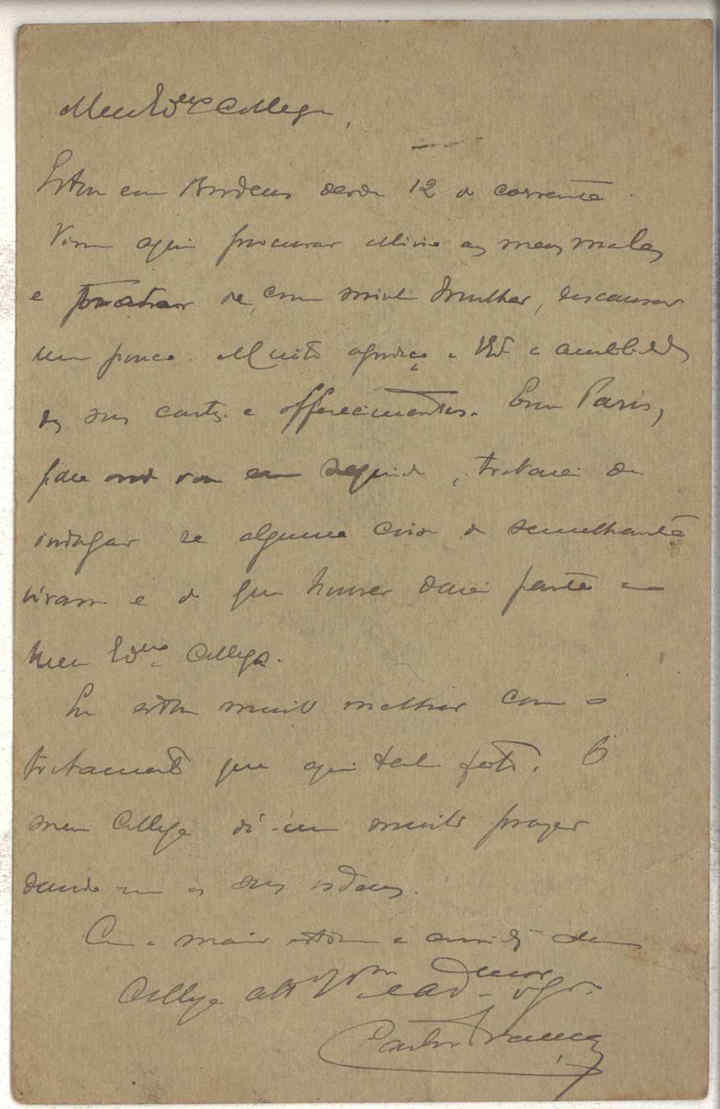 Meu Ex.mo Collega,
Estou em Bordeus desde 12 do corrente.
Vim aqui procurar allivio aos meus males
e de, com minha mulher, descansar
um pouco. Muito agradeço a V. Ex. a amabilidade
das suas cartas e offerecimentos. Em Paris,
para onde vou em seguida, tratarei de
indagar se alguma coisa de semelhante
viram e do que houver darei parte ao
meu Ex.mo Collega.
Eu estou muito melhor com o
tratamento que aqui tenho feito. O
meu Collega dá-me muito prazer
dando-me as suas ordens.
Com a maior estima e consideração
Collega att.º
Carlos França